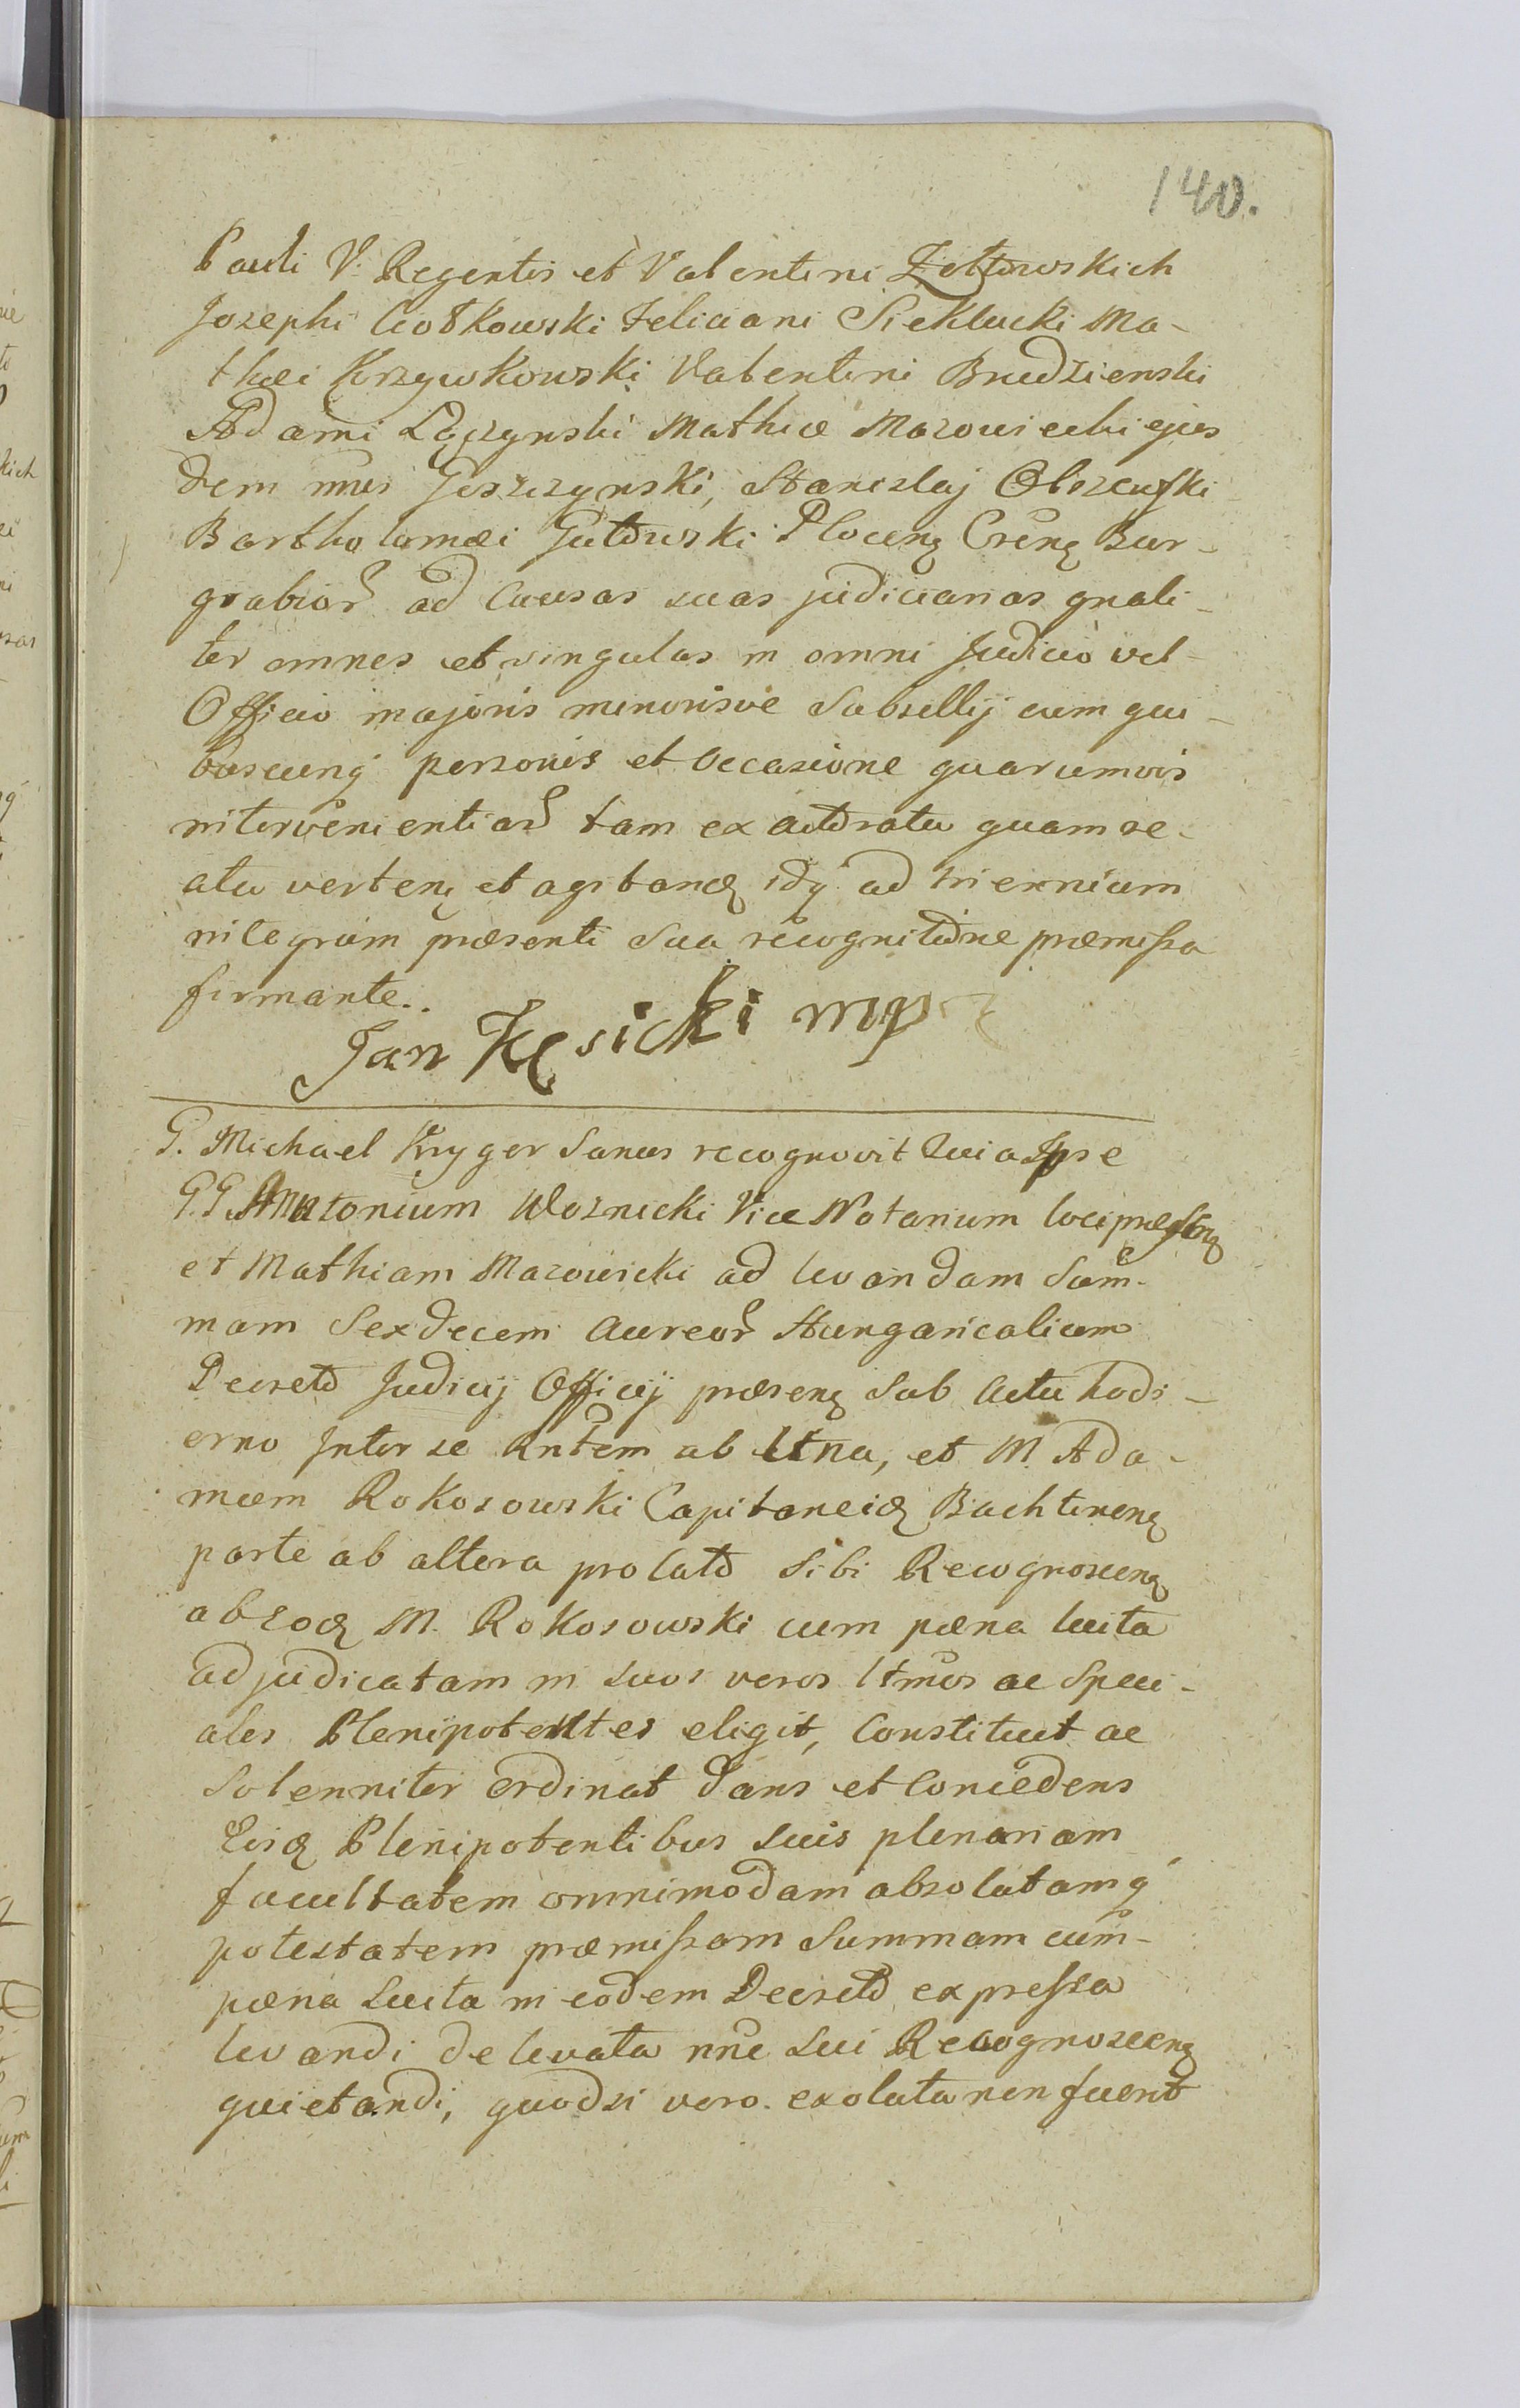 140.
Pauli V. Regentis et Valentini Zołtowskich
Josephi Ciołkowski Feliciani Sieklucki Ma-
thæi Krzywkowski Valentini Brudzienski
Adami Łączynski Mathiæ Mazowiecki ejus
dem nnis Goszczynski, Stanislaj Olszewski
Bartholomæi Gutowski Plocen Cren Bur-
grabior ad Causas suas judiciarias gnali-
ter omnes et singulas in omni Judicio vel
Officio majoris minorisve Subsellij cum qui-
buscunq personis et occasione quarumvis
intervenientiar tam ex actoratu quam re-
atu verten et agitand idq ad triennium
integrum præsenti sua recognitione præmissa
firmante..
Jan Kęsicki mp
G. Michael Kryger Sanus recognovit Quia Ipse
G.G. Antonium Woznicki Vice Notarium loci
et Mathiam Mazowiecki ad levandam Sum-
mam Sexdecem Aureor Hungaricalium
Decreto Judicij Officij præsen Sub Actu hodi-
erno Inter se Rntem ab Una, et M. Ada-
mum Rokosowski Capitaneid Bachtinen
parte ab altera prolato Sibi Recognoscen
ab eod M. Rokosowski cum pæna luita
adjudicatam in suos veros ltmos ac Speci-
ales Plenipotentes eligit, Constituit ac
Solenniter ordinat dans et Concedens
Eisd Plenipotentibus suis plenariam
facultatem omnimodam absolutamq
potestatem præmissam Summam cum
pæna Luita in eodem Decreto expressa
levandi de levata nne sui Recognoscen
quietandi, quodsi vero exoluta non fuerit